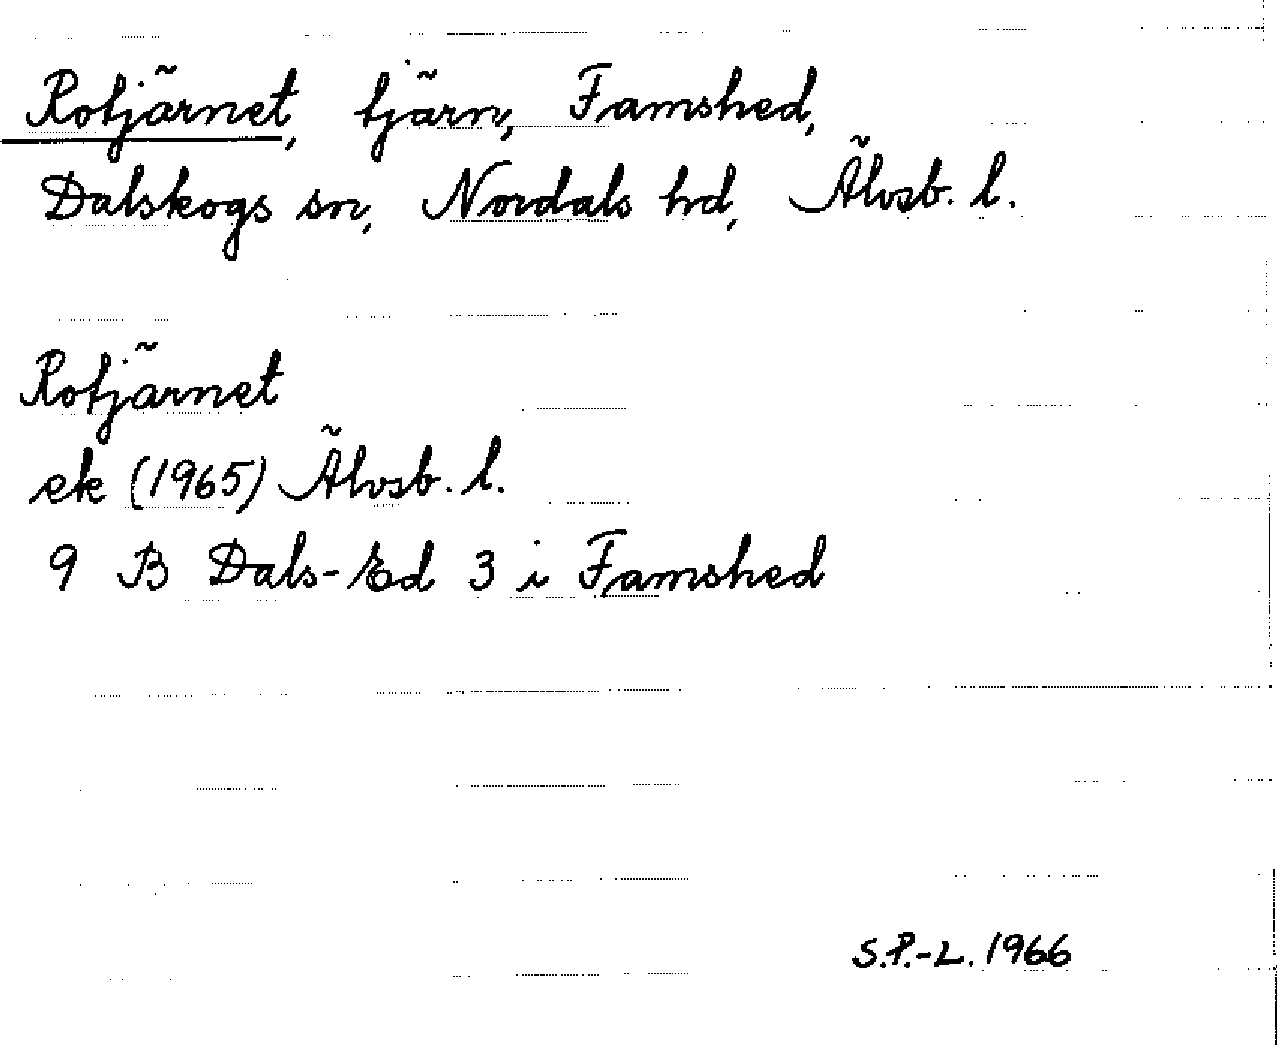 Rotjärnet, tjärn, Famshed,
Dalskogs sn, Nordals hd, Älvsb. l.
Rotjärnet
ek (1965) Älvsb. l.
9 B Dals-Ed 3 i Famshed
S.P.-L. 1966